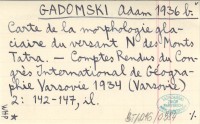 GADOMSKI Adam 1936 b.
Carte de la morphologie gla-
ciaire du versant N des Monts
Tatra. — Comptes Rendus du Con-
grès International de Géogra-
phie Varsovie 1934 (Varsovie)
2: 142-147, il.